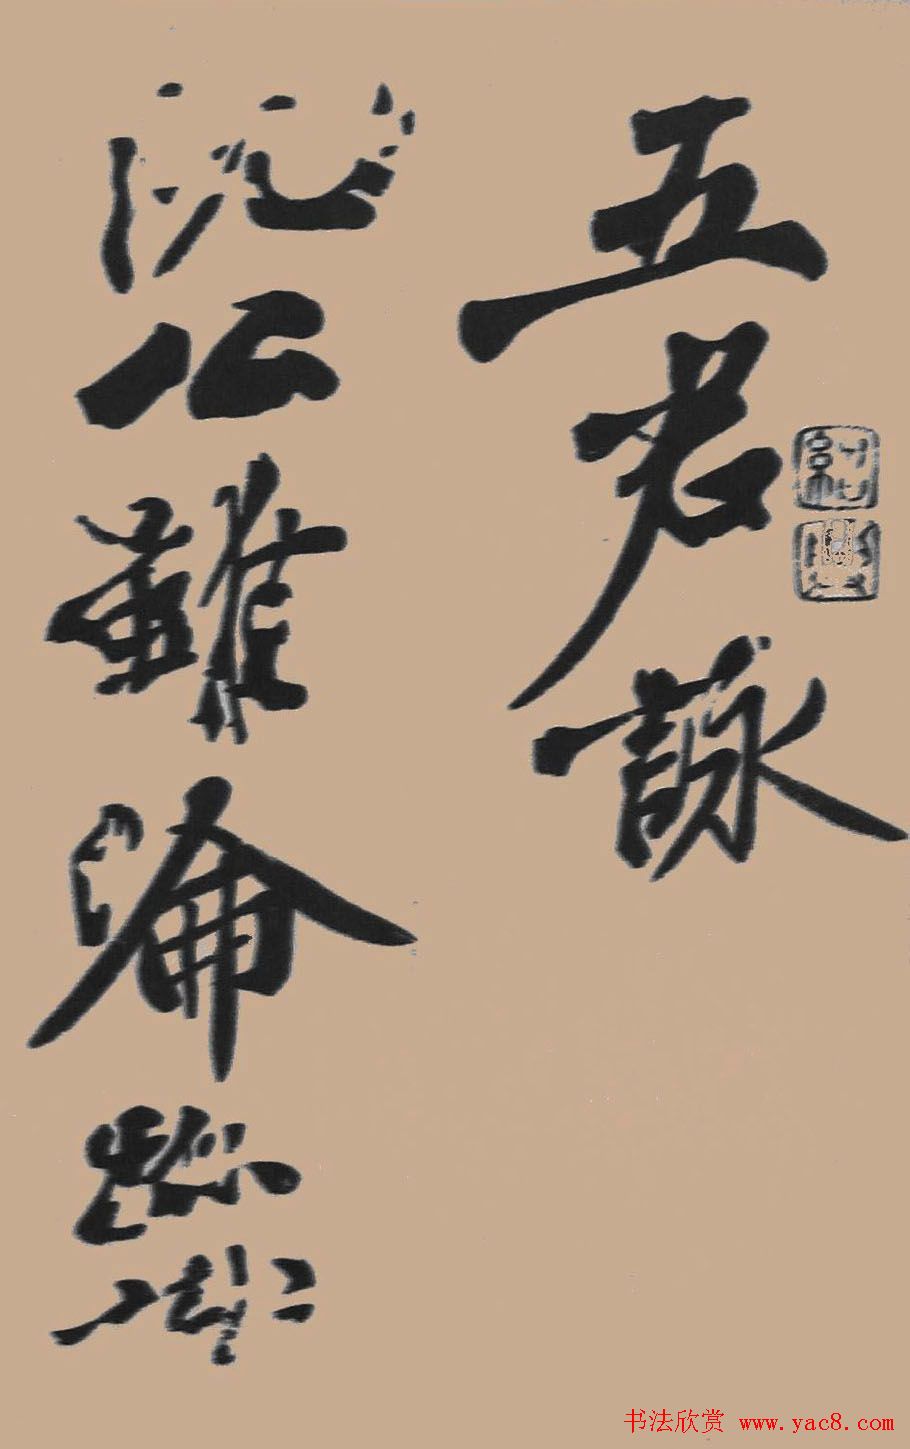 五君詠
阮公雖淪跡
书法欣赏 www.yac8.com